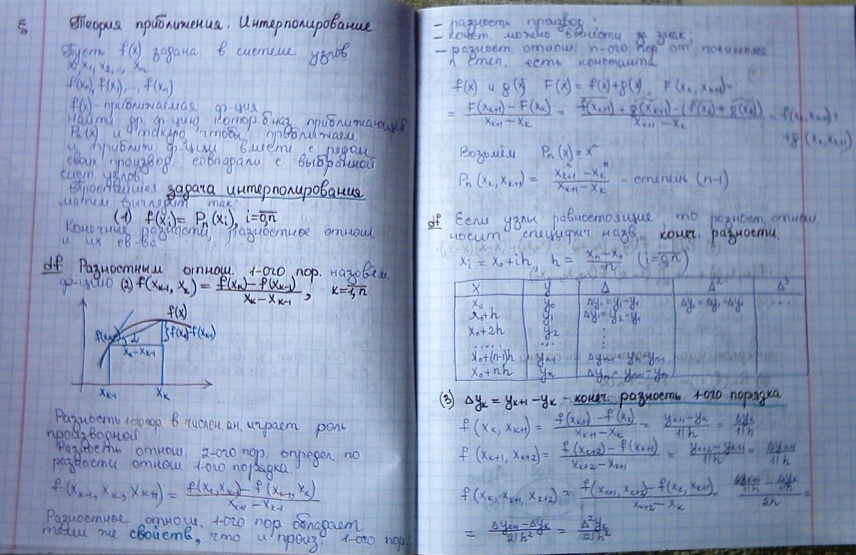 Теория приближения. Интерполирование
Пусть f(x) задана в системе узлов
x₀, x₁, x₂, ..., xₙ
f(x₀), f(x₁), .., f(xₙ)
f(x) - приближаемая ф-ция
найти др. ф-цию котор. наз. приближающей
Pₙ(x) и такую чтобы приближаем
и приближ. ф-ции вместе с рядом
своих производ. совпадали с выбранной
сист. узлов.
Простейшая задача интерполирования
матем выглядит так:
(1) f(xᵢ) = Pₙ(xᵢ), i = 0,n
Конечные разности, разностное отнош.
и их св-ва
df Разностным отнош. 1-ого пор. назовём
ф-цию (2) f(xₖ₋₁, xₖ) = (f(xₖ) - f(xₖ₋₁))/(xₖ - xₖ₋₁), k = 1,n
f(x)
xₖ₋₁ xₖ
Разность 1-ого пор в числен. ан. играет роль
производной
Разность отнош. 2-ого пор. определ. по
разности отнош. 1-ого порядка
f(xₖ₋₁, xₖ, xₖ₊₁) = (f(xₖ, xₖ₊₁) - f(xₖ₋₁, xₖ))/(xₖ₊₁ - xₖ₋₁)
Разностное отнош. 1-ого пор. обладает
теми же свойств, что и произ. 1-ого пор.
- разность производ.
- конст. можно вынести за знак,
- разност. отнош. n-ого пор от полинома
n степ. есть константа
f(x) и g(x) F(x) = f(x) + g(x), F(xₖ, xₖ₊₁) =
= (F(xₖ₊₁) - F(xₖ))/(xₖ₊₁ - xₖ) = (f(xₖ₊₁) + g(xₖ₊₁) - (f(xₖ) + g(xₖ)))/(xₖ₊₁ - xₖ) = f(xₖ, xₖ₊₁) +
+ g(xₖ, xₖ₊₁)
Возьмём Pₙ(x) = xⁿ
Pₙ(xₖ, xₖ₊₁) = (xₖ₊₁ⁿ - xₖⁿ)/(xₖ₊₁ - xₖ) - степень (n-1)
df Если узлы равностоящие, то разност. отнош
носит специфич назв. конеч. разности.
xᵢ = x₀ + ih h = (xₙ - x₀)/n (i = 0,n)
x y Δ Δ² Δ³
x₀ y₀ Δy₀ = y₁ - y₀ Δ²y₀ = Δy₁ - Δy₀ ....
x₀+h y₁ Δy₁ = y₂ - y₁
x₀+2h y₂ :
..... ... :
x₀+(n-1)h yₙ₋₁ Δyₙ₋₁ = yₙ - yₙ₋₁
x₀+nh yₙ
(3) Δyₖ = yₖ₊₁ - yₖ - конеч. разность 1-ого порядка
f(xₖ, xₖ₊₁) = (f(xₖ₊₁) - f(xₖ))/(xₖ₊₁ - xₖ) = (yₖ₊₁ - yₖ)/(1!h) = Δyₖ/(1!h)
f(xₖ₊₁, xₖ₊₂) = (f(xₖ₊₂) - f(xₖ₊₁))/(xₖ₊₂ - xₖ₊₁) = (yₖ₊₂ - yₖ₊₁)/(1!h) = Δyₖ₊₁/(1!h)
f(xₖ, xₖ₊₁, xₖ₊₂) = (f(xₖ₊₁, xₖ₊₂) - f(xₖ, xₖ₊₁))/(xₖ₊₂ - xₖ) = (Δyₖ₊₁/1!h - Δyₖ/1!h)/(2h) =
= (Δyₖ₊₁ - Δyₖ)/(2!h²) = Δ²yₖ/(2!h²)